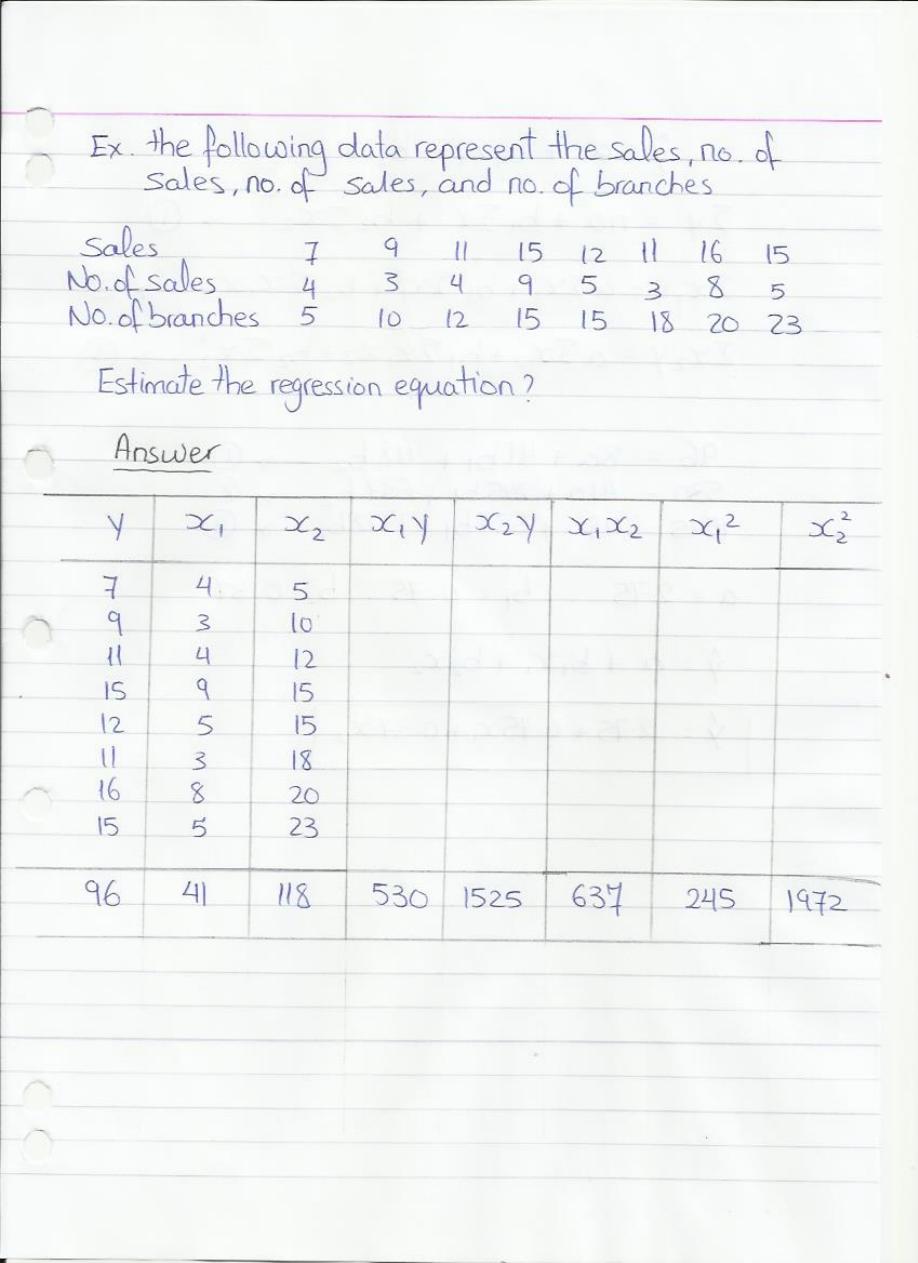 Ex. the following data represent the sales, no. of
sales, no. of sales, and no. of branches
Sales 7 9 11 15 12 11 16 15
No. of sales 4 3 4 9 5 3 8 5
No. of branches 5 10 12 15 15 18 20 23
Estimate the regression equation?
Answer
y x₁ x₂ x₁y x₂y x₁x₂ x₁² x₂²
7 4 5
9 3 10
11 4 12
15 9 15
12 5 15
11 3 18
16 8 20
15 5 23
96 41 118 530 1525 637 245 1972